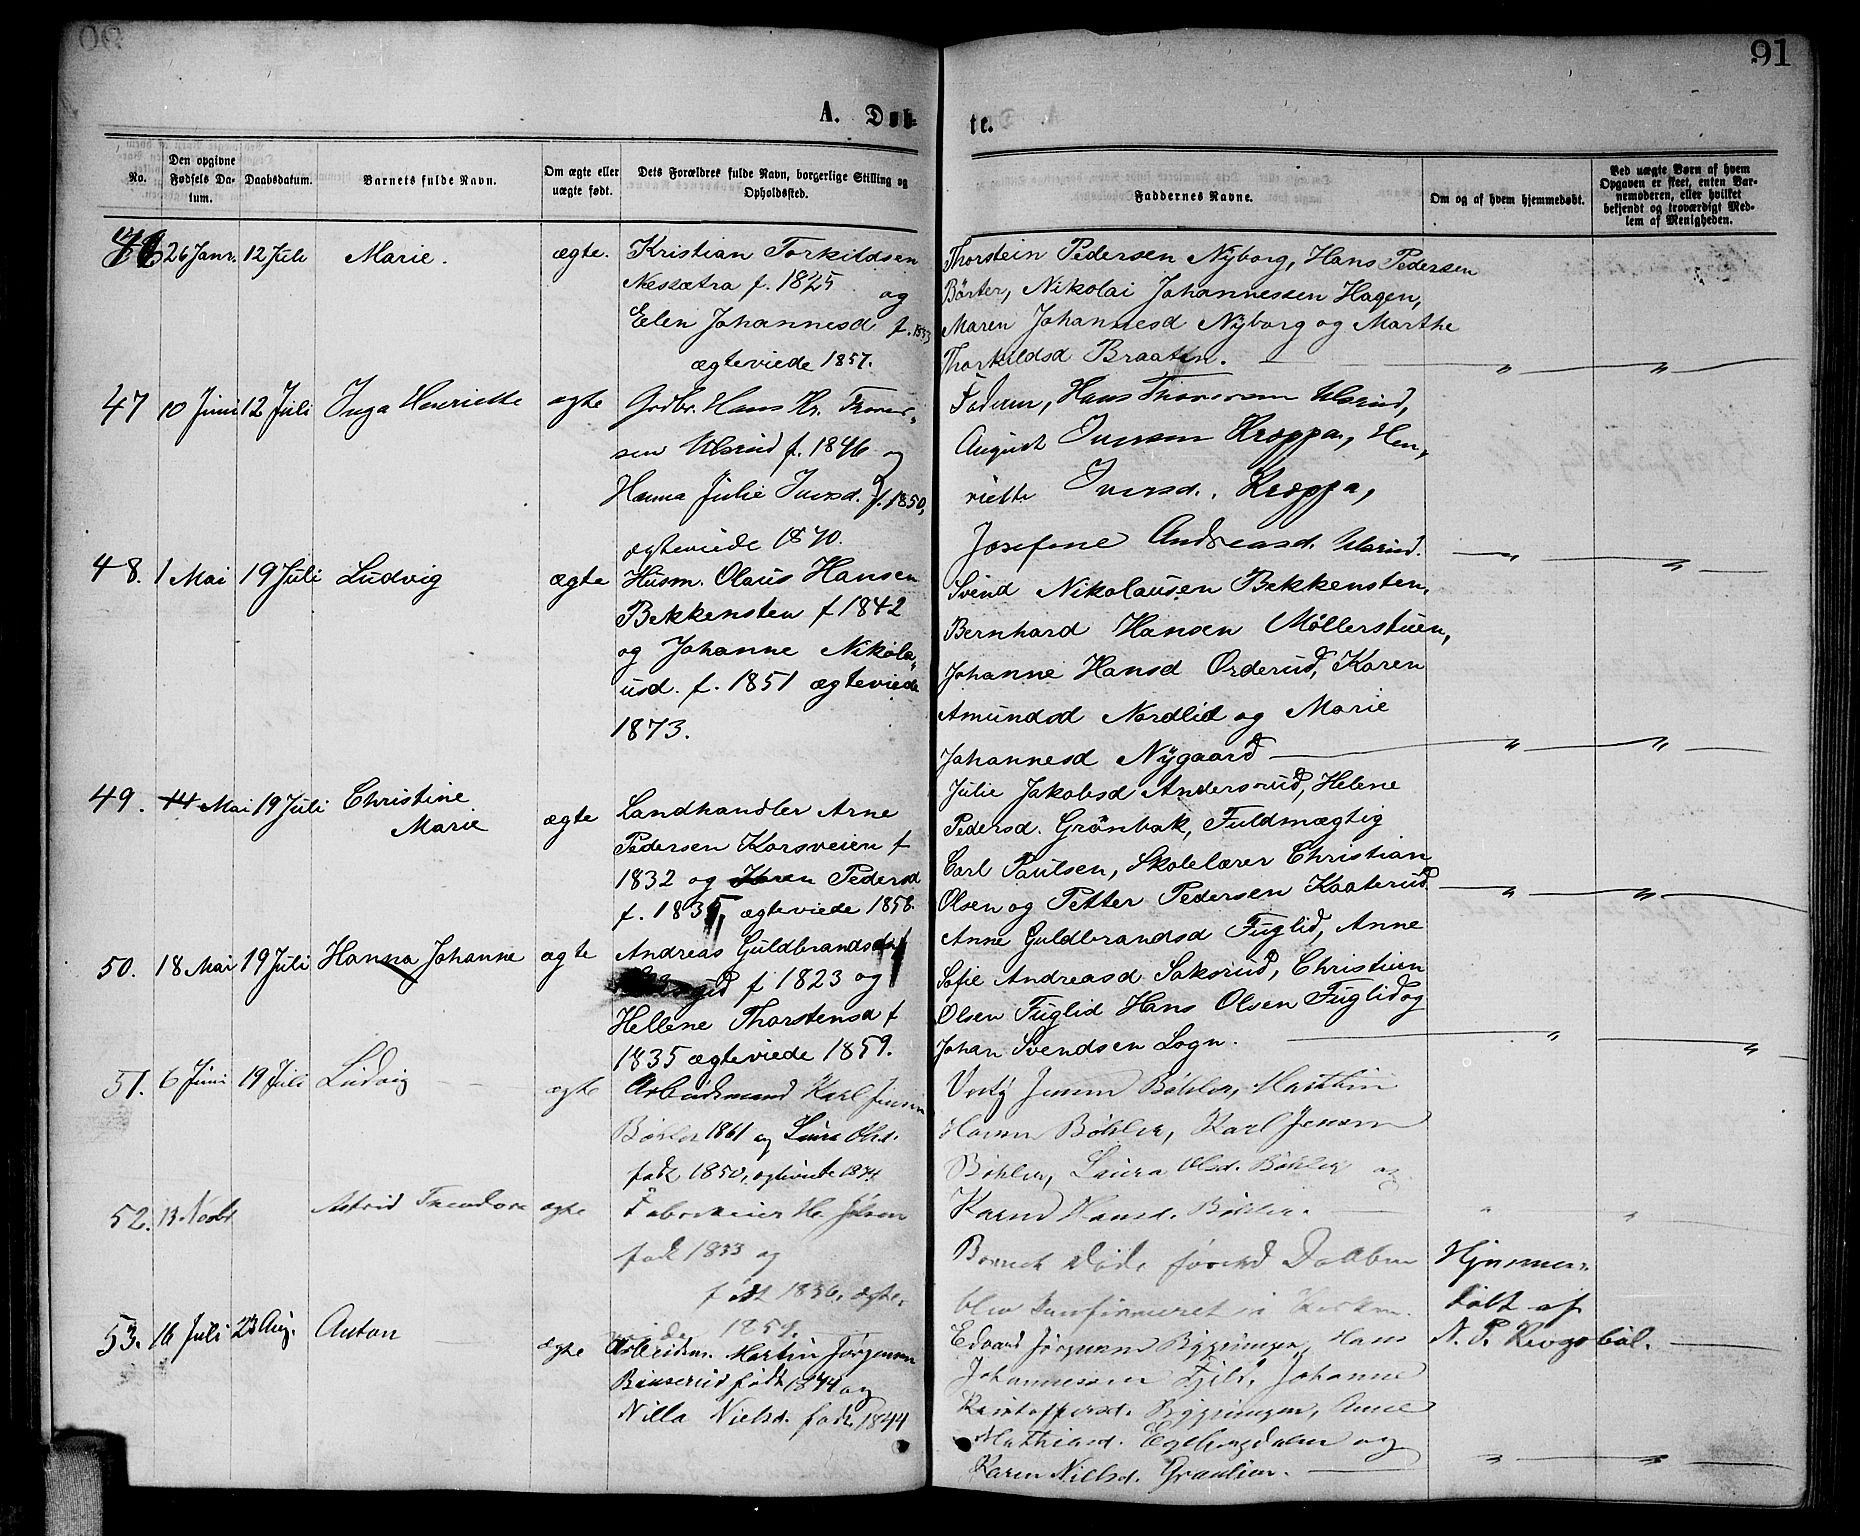 91
A. Døb-
te.
No.
Den opgivne
Fødsels Da-
tum.
Daabsdatum.
Barnets fulde Navn.
Om ægte eller
uægte født.
Dets Forældres fulde Navn, borgerlige Stilling og
Opholdssted.
Faddernes Navne.
Om og af hvem hjemmedøbt.
Ved uægte Børn af hvem
Opgaven er skeet, enten Bar-
nemoderen, eller hvilket
bekjendt og troværdigt Med-
lem af Menigheden.
46 26 Janr. 12 Juli Marie. ægte.
Kristian Torkildsen
Nessætra f. 1825
og
Elen Johannesd f. 1833
ægteviede 1857.
Thorstein Pedersen Nyborg, Hans Pedersen
Børter, Nikolai Johannessen Hagen,
Maren Johannesd Nyborg og Marthe
Thorkildsd Braaten. " "
47 10 Juni 12 Juli Inga Henriette ægte
Grdbr. Hans Kr. Thorer-
sen Ulsrud f. 1846 og
Hanna Julie Iversd. f. 1850,
ægteviede 1870.
Faderen, Hans Thoresen Ulsrud,
August Iversen Kroppa, Hen-
riette Iversd. Kroppa,
Josefine Andreasd. Ulsrud. " "
48. 1 Mai 19 Juli Ludvig ægte
Husm. Olaus Hansen
Bekkensten f 1842
og Johanne Nikola-
usd. f. 1851 ægteviede
1873.
Svend Nikolausen Bekkensten,
Bernhard Hansen Møllerstuen,
Johanne Hansd Orderud, Karen
Amundsd Nordlid og Marie
Johannesd Nygaard " "
49. 14 Mai 19 Juli Christine
Marie ægte
Landhandler Arne
Pedersen Korsveien f
1832 og Karen Pedersd
f. 1835, ægteviede 1858.
Julie Jakobsd Andersrud, Helene
Pedersd. Grønbæk, Fuldmægtig
Carl Paulsen, Skolelærer Christian
Olsen og Petter Pedersen Kaaterud " "
50. 18 Mai 19 Juli Hanna Johanne ægte
Andreas Guldbrandsen
f 1823 og
Hellene Thorstensd f
1835 ægteviede 1859.
Anne Guldbrandsd Fuglid, Anne
Sofie Andreasd Saksrud, Christian
Olsen Fuglid Hans Olsen Fuglid og
Johan Svendsen Logn. " "
51. 6 Juni 19 Juli Ludvig ægte
Arbeidsmand Karl Jensen
Bøhler 1861 og Laura Olsd.
født 1850, ægteviede 1874
Jensen Bøhler, Marthin
Hansen Bøhler, Karl Jensen
Bøhler, Laura Olsd. Bøhler og
Karen Hansd. Bøhler. " "
52. 13 Novbr Astrid Theodora ægte
født 1833 og
født 1836, ægte-
viede 1859.
Barnet døde førend Daaben
blev konfirmeret i Kirken.
Hjemme-
døbt af
N. P. Krogsbøl.
53. 16 Juli 23 Aug. Anton ægte
Arbeidsm. Martin Jørgensen
født 1844 og
Nilla Nielsd. født 1844
Edvard Jørgensen Bygningen, Hans
Johannessen Fjeld, Johanne
Kristoffersd. Bygningen, Anne
Mathiasd. Egebergdalen og
Karen Nielsd. Granlien. " "